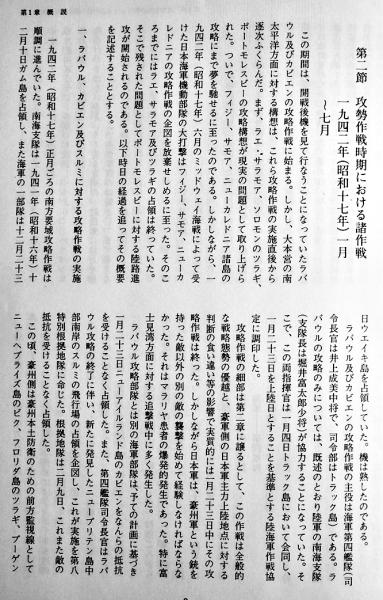 第1章 概 説
第二節 攻勢作戦時期における諸作戦
一九四二年(昭和十七年)一月
～七月
この期間は、開戦後機を見て行なうことになっていたラバ
ウル及びカビエンの攻略作戦に始まる。しかし、大本営の南
太平洋方面に対する構想は、これら攻略作戦の実施直後から
逐次ふくらんだ。まず、ラエ、サラモア、ソロモンのツラギ、
ポートモレスビーの攻略構想が現実の問題として取り上げら
れた。ついで、フィジー、サモア、ニューカレドニア諸島の
攻略にまで夢を馳せるに至ったのである。しかしながら、一
九四二年(昭和十七年)六月のミッドウェイ海戦によって受
けた日本海軍機動部隊の大打撃はフィジー、サモア、ニューカ
レドニアの攻略作戦の企図を放棄せしめるに至った。そのこ
ろまでにはラエ、サラモア及びツラギの占領は終わっていた。
そこで残された問題としてポートモレスビーに対する陸路進
攻が開始されるのである。以下時日の経過を追ってその概要
を記述することとする。
一、ラバウル、カビエン及びスルミに対する攻略作戦の実施
一九四二年(昭和十七年)正月ごろの南方要域攻略作戦は
順調に進んでいた。南海支隊は一九四一年(昭和十六年)十
二月十日ガム島を占領し、また海軍の一部隊は十二月二十三
日ウエイキ島を占領していた。機は熟したのである。
ラバウル及びカビエンの攻略作戦の主役は海軍第四艦隊(司
令長官は井上成美中将で、司令部はトラック島)である。ラ
バウルの攻略のみについては、既述のとおり陸軍の南海支隊
(支隊長は堀井富太郎少将)が協力することになっていた。そ
こで、この両指揮官は一月四日トラック島において会同し、
一月二十三日を上陸日とすることを基準とする陸海軍作戦協
定に調印した。
攻略作戦の細部は第二章に譲るとして、この作戦は全般的
な戦略態勢の優越と、豪軍側の日本軍主力上陸地点に対する
判断の食い違い等の影響で実質的には一月二十三日中にその攻
略作戦は終った。しかしながら日本軍は、豪州軍という銃を
持った敵以外の別の敵の襲撃を始めて経験しなければならな
かった。それはマラリヤ患者の爆発的発生であった。特に富
士見湾方面に対する追撃戦中に多く発生した。
ラバウル攻略部隊とは別の海軍部隊は、予ての計画に基づき
一月二十三日ニューアイルランド島のカビエンをなんらの抵抗
を受けることなく占領した。また、第四艦隊司令長官はラバ
ウル攻略の終了に伴い、新たに発見したニューブリテン島中
部南岸のスルミの飛行場の占領を企図し、これが実施を第八
特別根拠地隊に命じた。根拠地隊は二月九日、これまた敵の
抵抗を受けることなく占領した。
この頃、豪州側は豪州本土防衛のための前方監視線として
ニューヘブライズ島のビク、フロリダ島のツラギ、ブーゲン